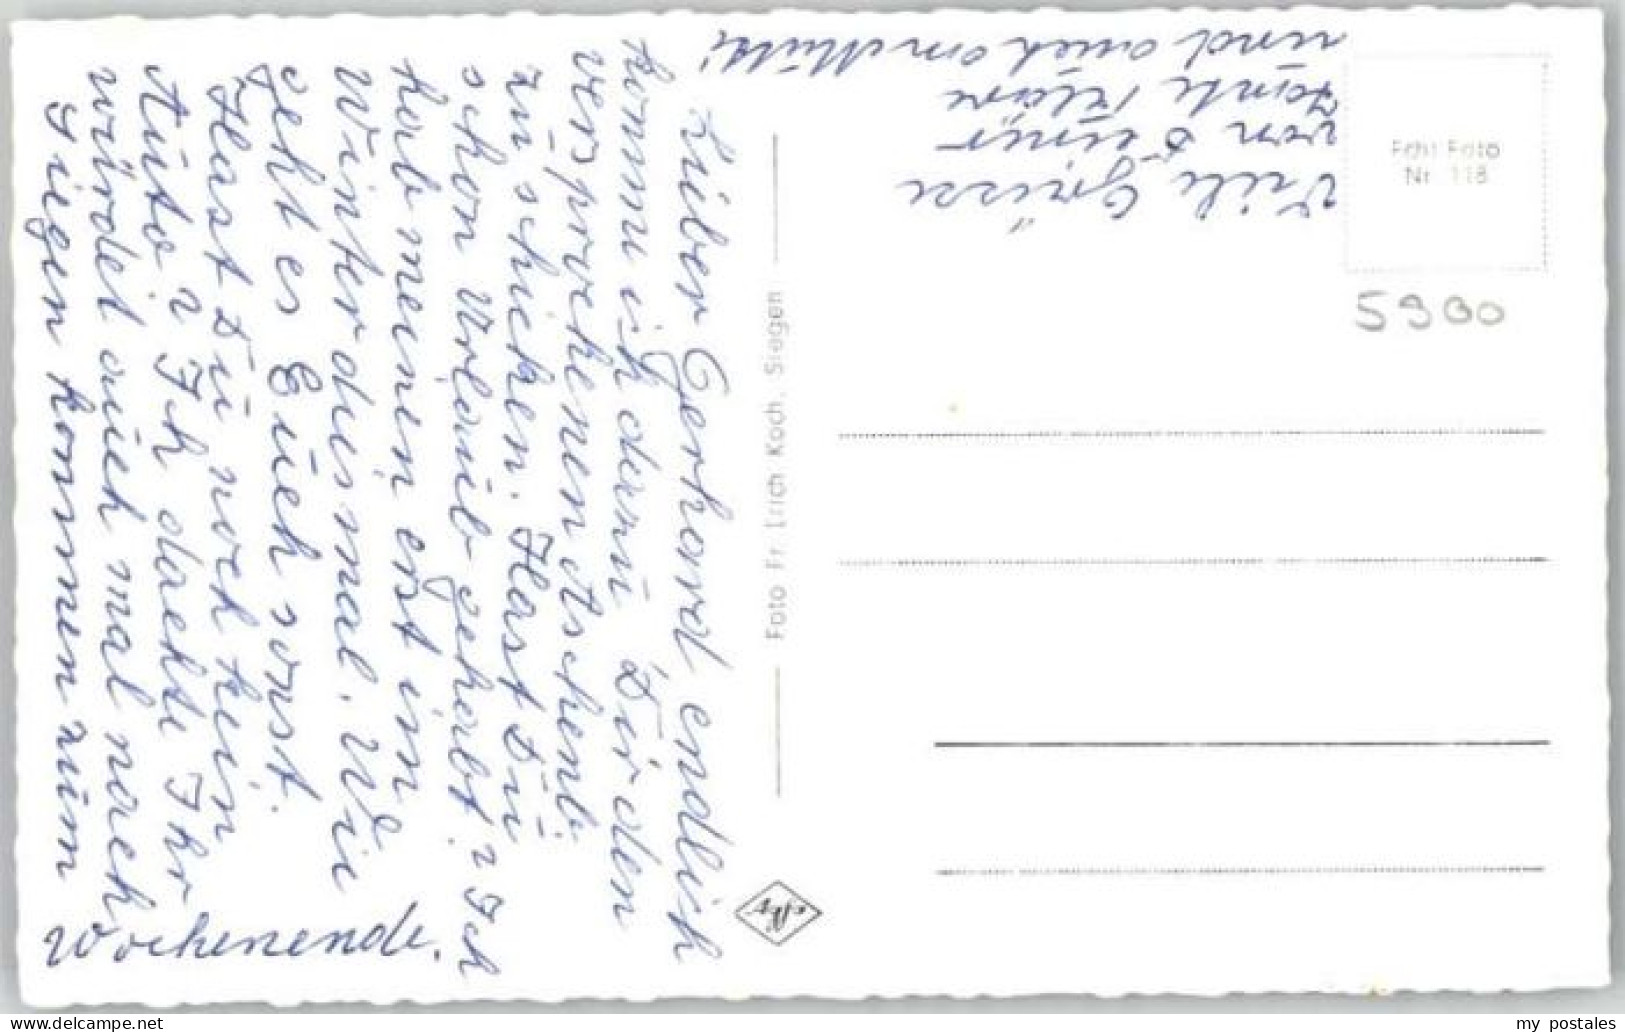 Lieber Gerhard endlich
komme ich dazu Dir den
versprochenen Aschenb.
zu schicken. Hast Du
schon Urlaub gehabt? Ich
hab meinen erst im
Winter diesmal. Wie
geht es Euch sonst.
Hast Du noch kein
Auto? Ich dachte Ihr
würdet auch mal nach
Siegen kommen zum
Wochenende.
Viele Grüsse
von Deiner
Tante Kläre
und auch an Mutti
Foto Fr. Erich Koch, Siegen
Echt Foto
Nr. 118
5900
my postales